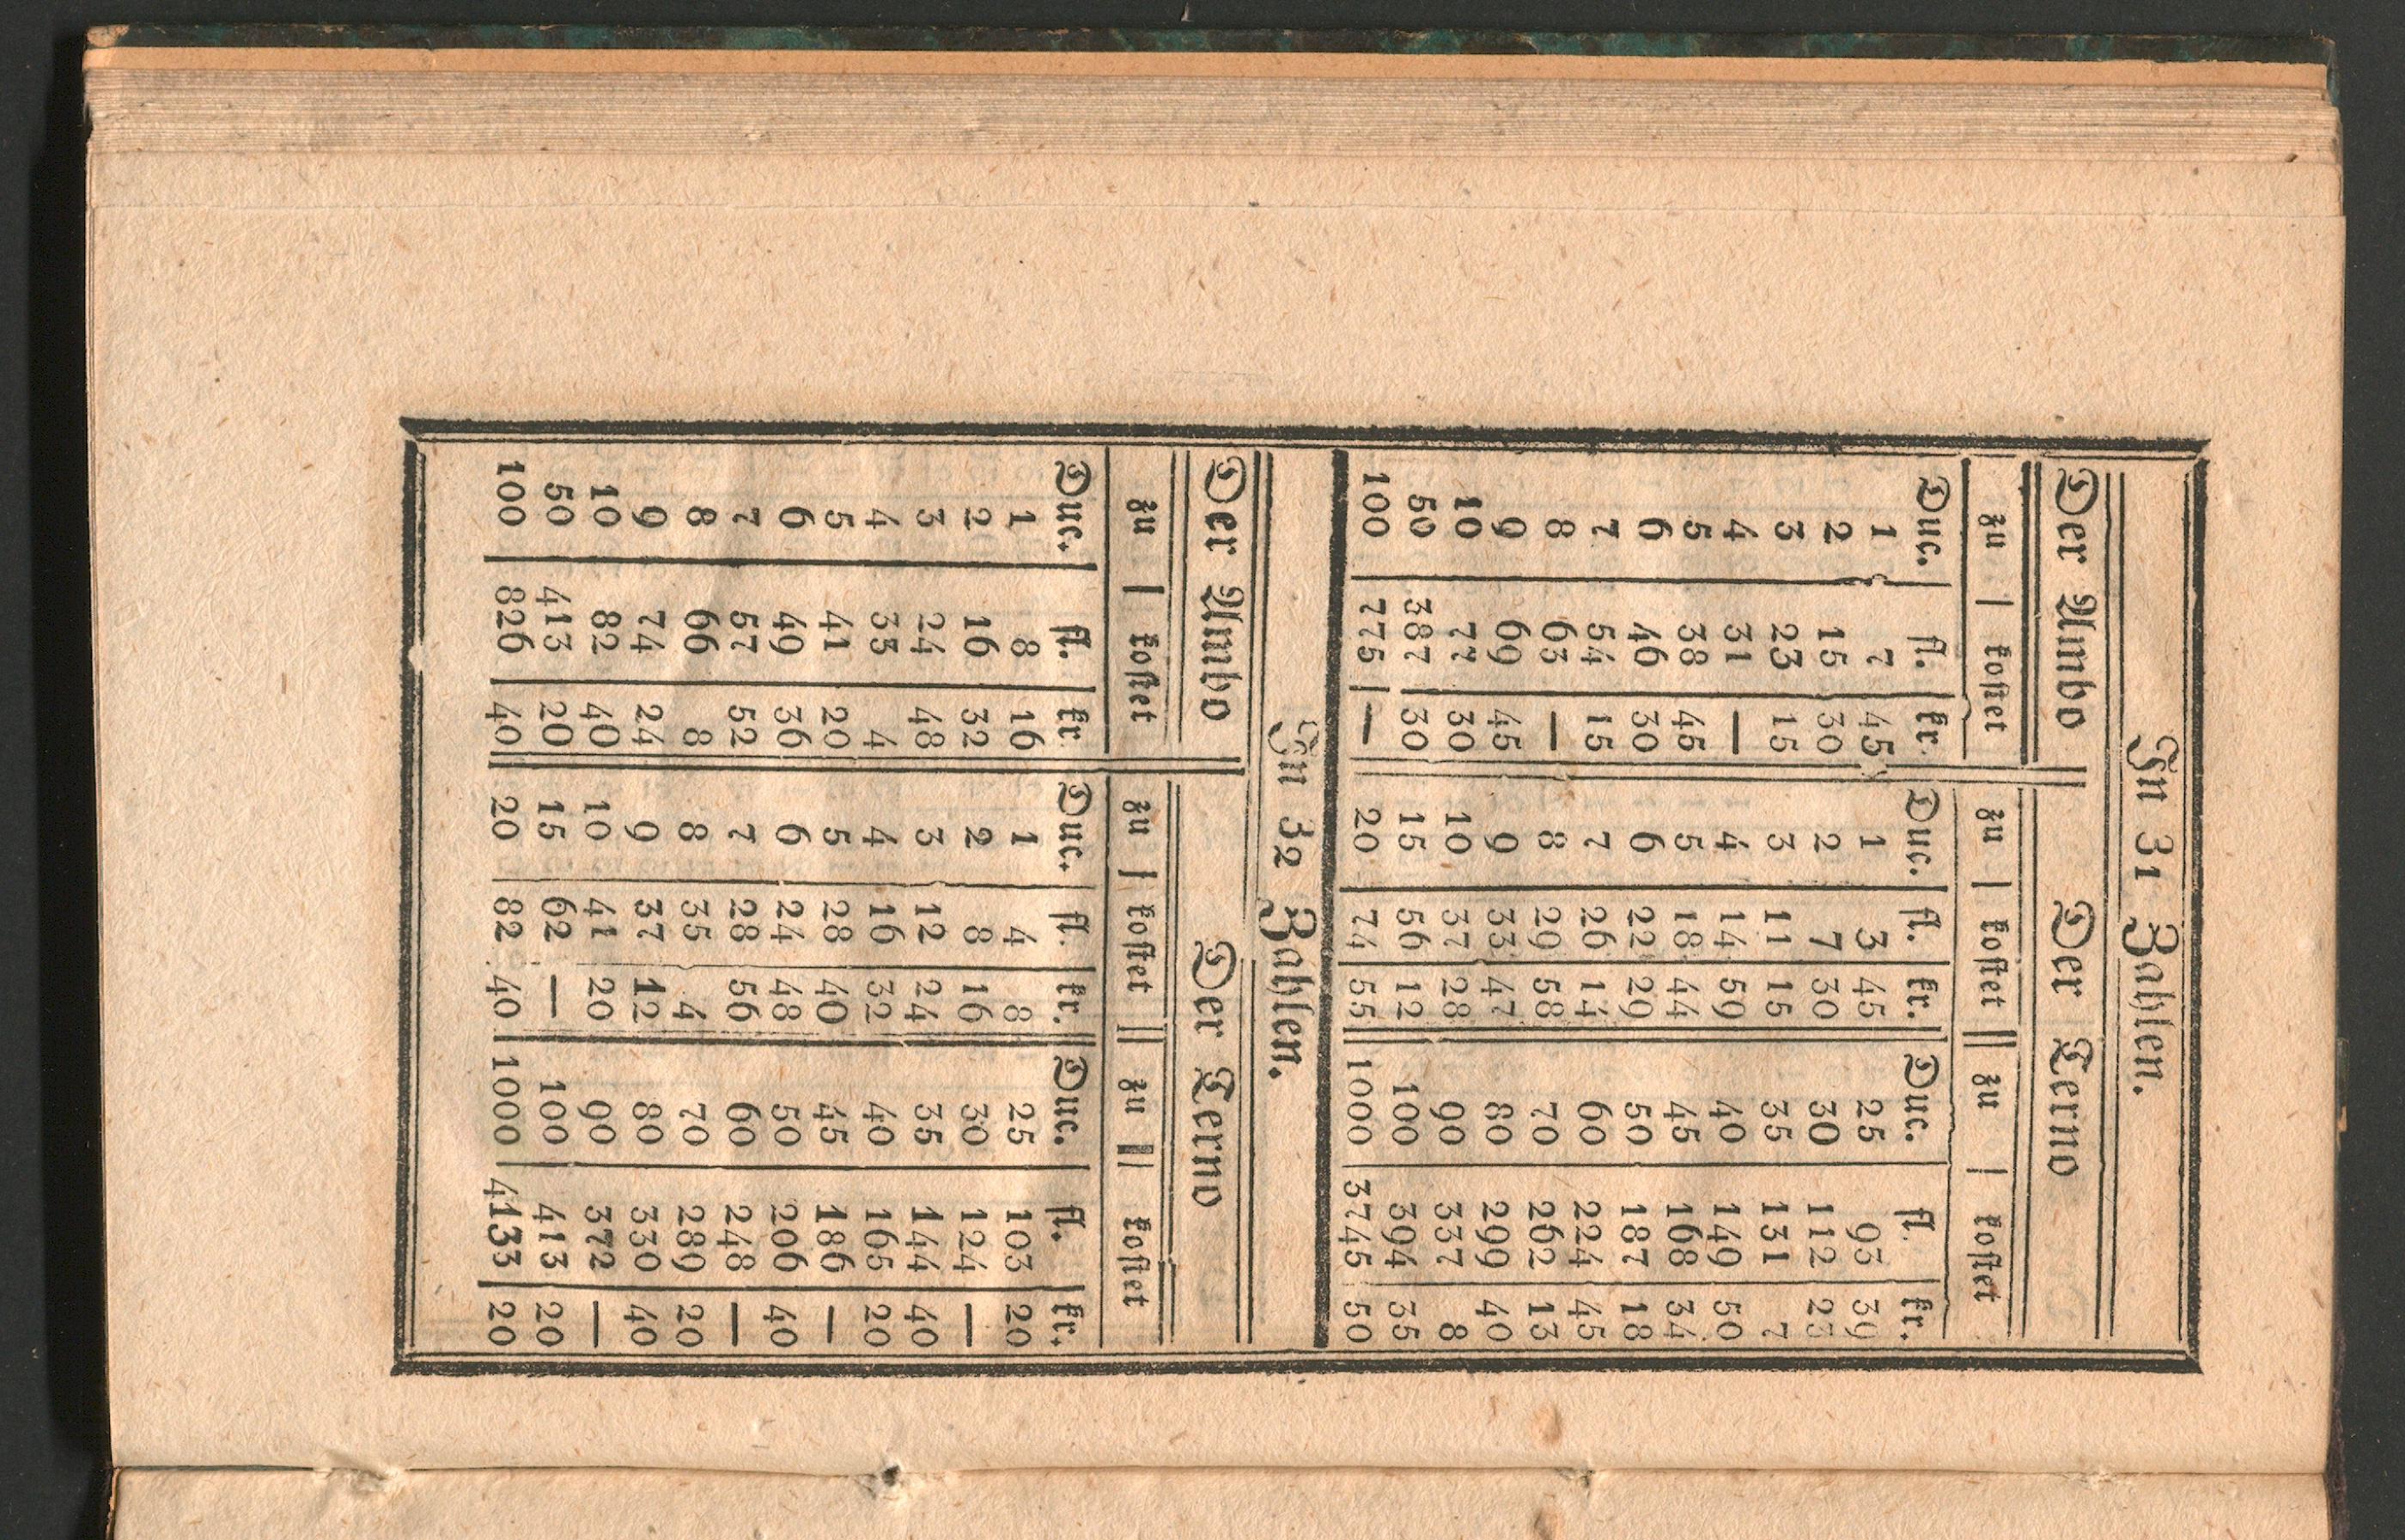 In 31 Zahlen.
Der Umbo | Der Terno
zu | kostet | zu | kostet || zu | kostet
Duc. | fl. | kr. | Duc. | fl. | kr. | Duc. | fl. | kr.
1 | 7 | 45 | 1 | 3 | 45 | 25 | 93 | 39
2 | 15 | 30 | 2 | 7 | 30 | 30 | 112 | 23
3 | 23 | 15 | 3 | 11 | 15 | 35 | 131 | 7
4 | 31 | — | 4 | 14 | 59 | 40 | 149 | 50
5 | 38 | 45 | 5 | 18 | 44 | 45 | 168 | 34
6 | 46 | 30 | 6 | 22 | 29 | 50 | 187 | 18
7 | 54 | 15 | 7 | 26 | 14 | 60 | 224 | 45
8 | 63 | — | 8 | 29 | 58 | 70 | 262 | 13
9 | 69 | 45 | 9 | 33 | 47 | 80 | 299 | 40
10 | 77 | 30 | 10 | 37 | 28 | 90 | 337 | 8
50 | 387 | 30 | 15 | 56 | 12 | 100 | 394 | 35
100 | 775 | — | 20 | 74 | 55 | 1000 | 3745 | 50
In 32 Zahlen.
Der Umbo | Der Terno
zu | kostet | zu | kostet || zu | kostet
Duc. | fl. | kr | Duc. | fl. | kr. | Duc. | fl. | kr.
1 | 8 | 16 | 1 | 4 | 8 | 25 | 103 | 20
2 | 16 | 32 | 2 | 8 | 16 | 30 | 124 | —
3 | 24 | 48 | 3 | 12 | 24 | 35 | 144 | 40
4 | 33 | 4 | 4 | 16 | 32 | 40 | 165 | 20
5 | 41 | 20 | 5 | 28 | 40 | 45 | 186 | —
6 | 49 | 36 | 6 | 24 | 48 | 50 | 206 | 40
7 | 57 | 52 | 7 | 28 | 56 | 60 | 248 | —
8 | 66 | 8 | 8 | 35 | 4 | 70 | 289 | 20
9 | 74 | 24 | 9 | 37 | 12 | 80 | 330 | 40
10 | 82 | 40 | 10 | 41 | 20 | 90 | 372 | —
50 | 413 | 20 | 15 | 62 | — | 100 | 413 | 20
100 | 826 | 40 | 20 | 82 | 40 | 1000 | 4133 | 20